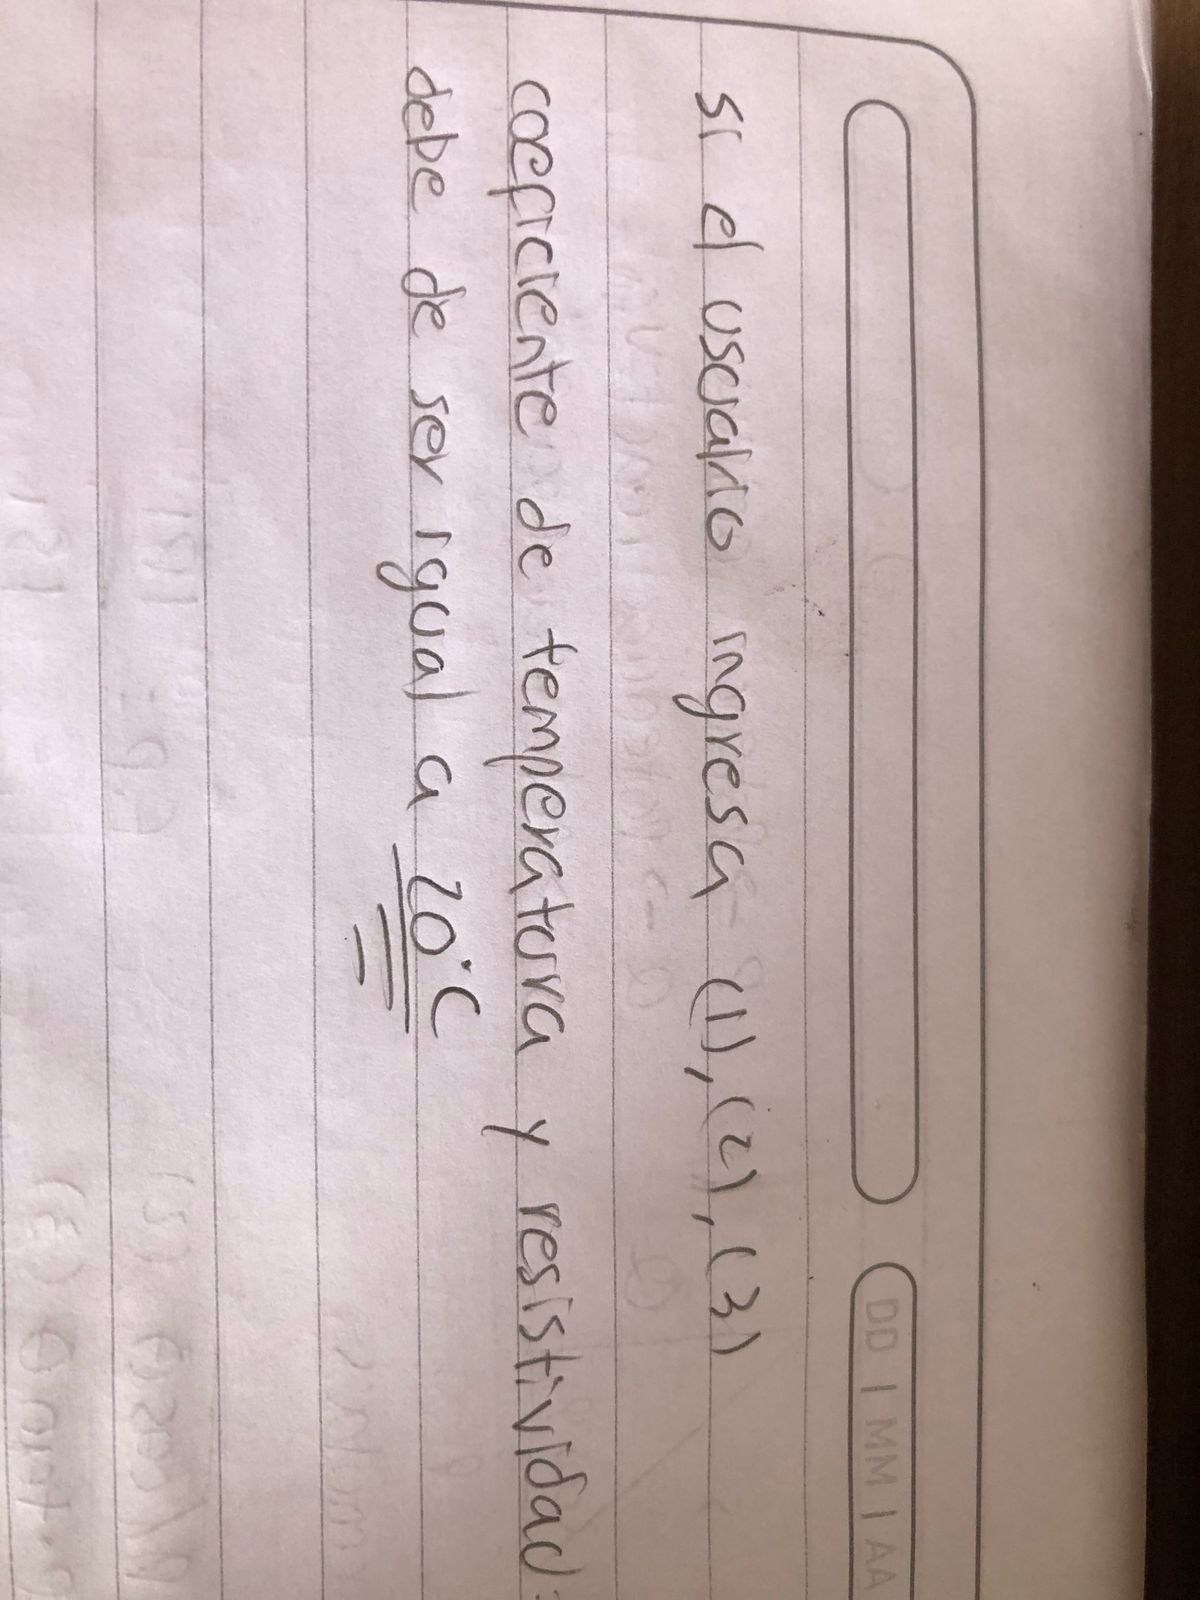 DD | MM | AA
si el usuario ingresa (1), (2), (3)
coeficiente de temperatura y resistividad:
debe de ser igual a 20°C